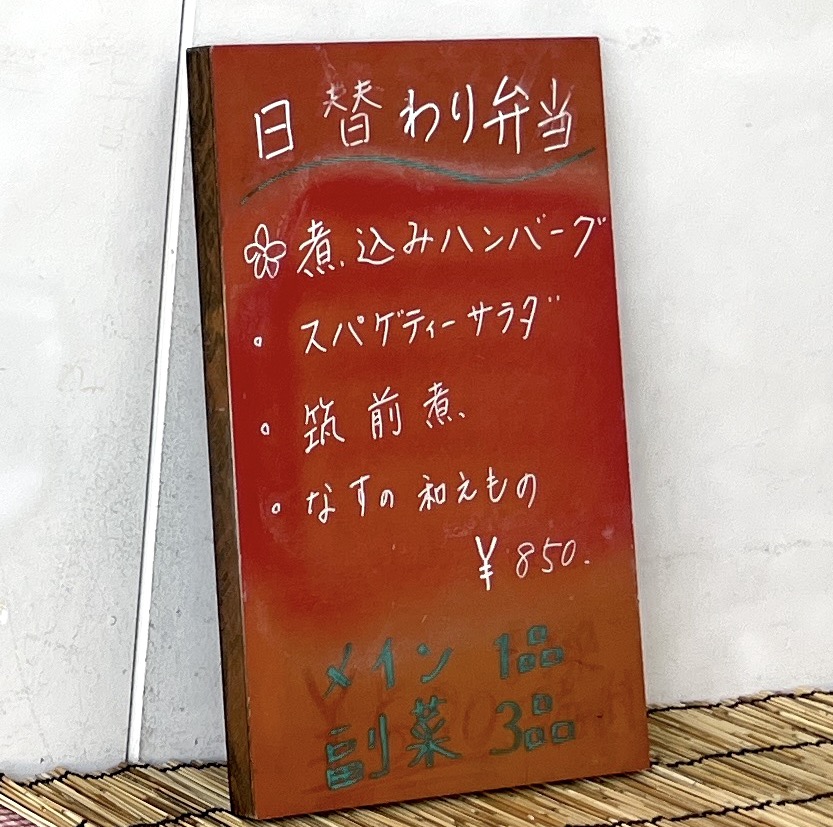 日替わり弁当
煮込みハンバーグ
・スパゲティーサラダ
・筑前煮
・なすの和えもの
¥850.
メイン 1品
副菜 3品